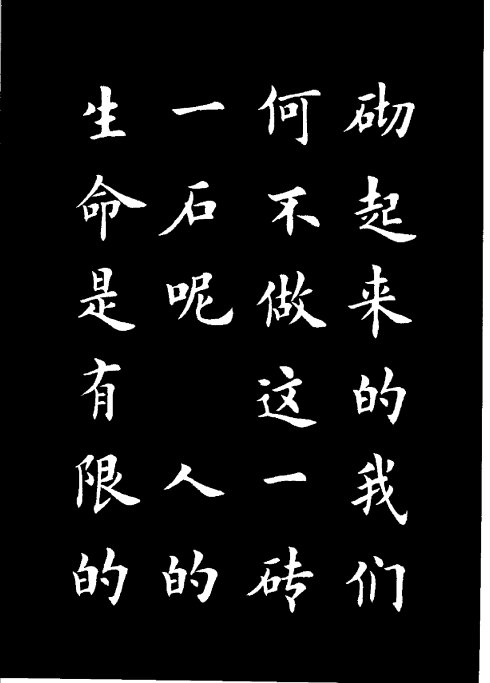 砌起来的我们
何不做这一砖
一石呢　人的
生命是有限的